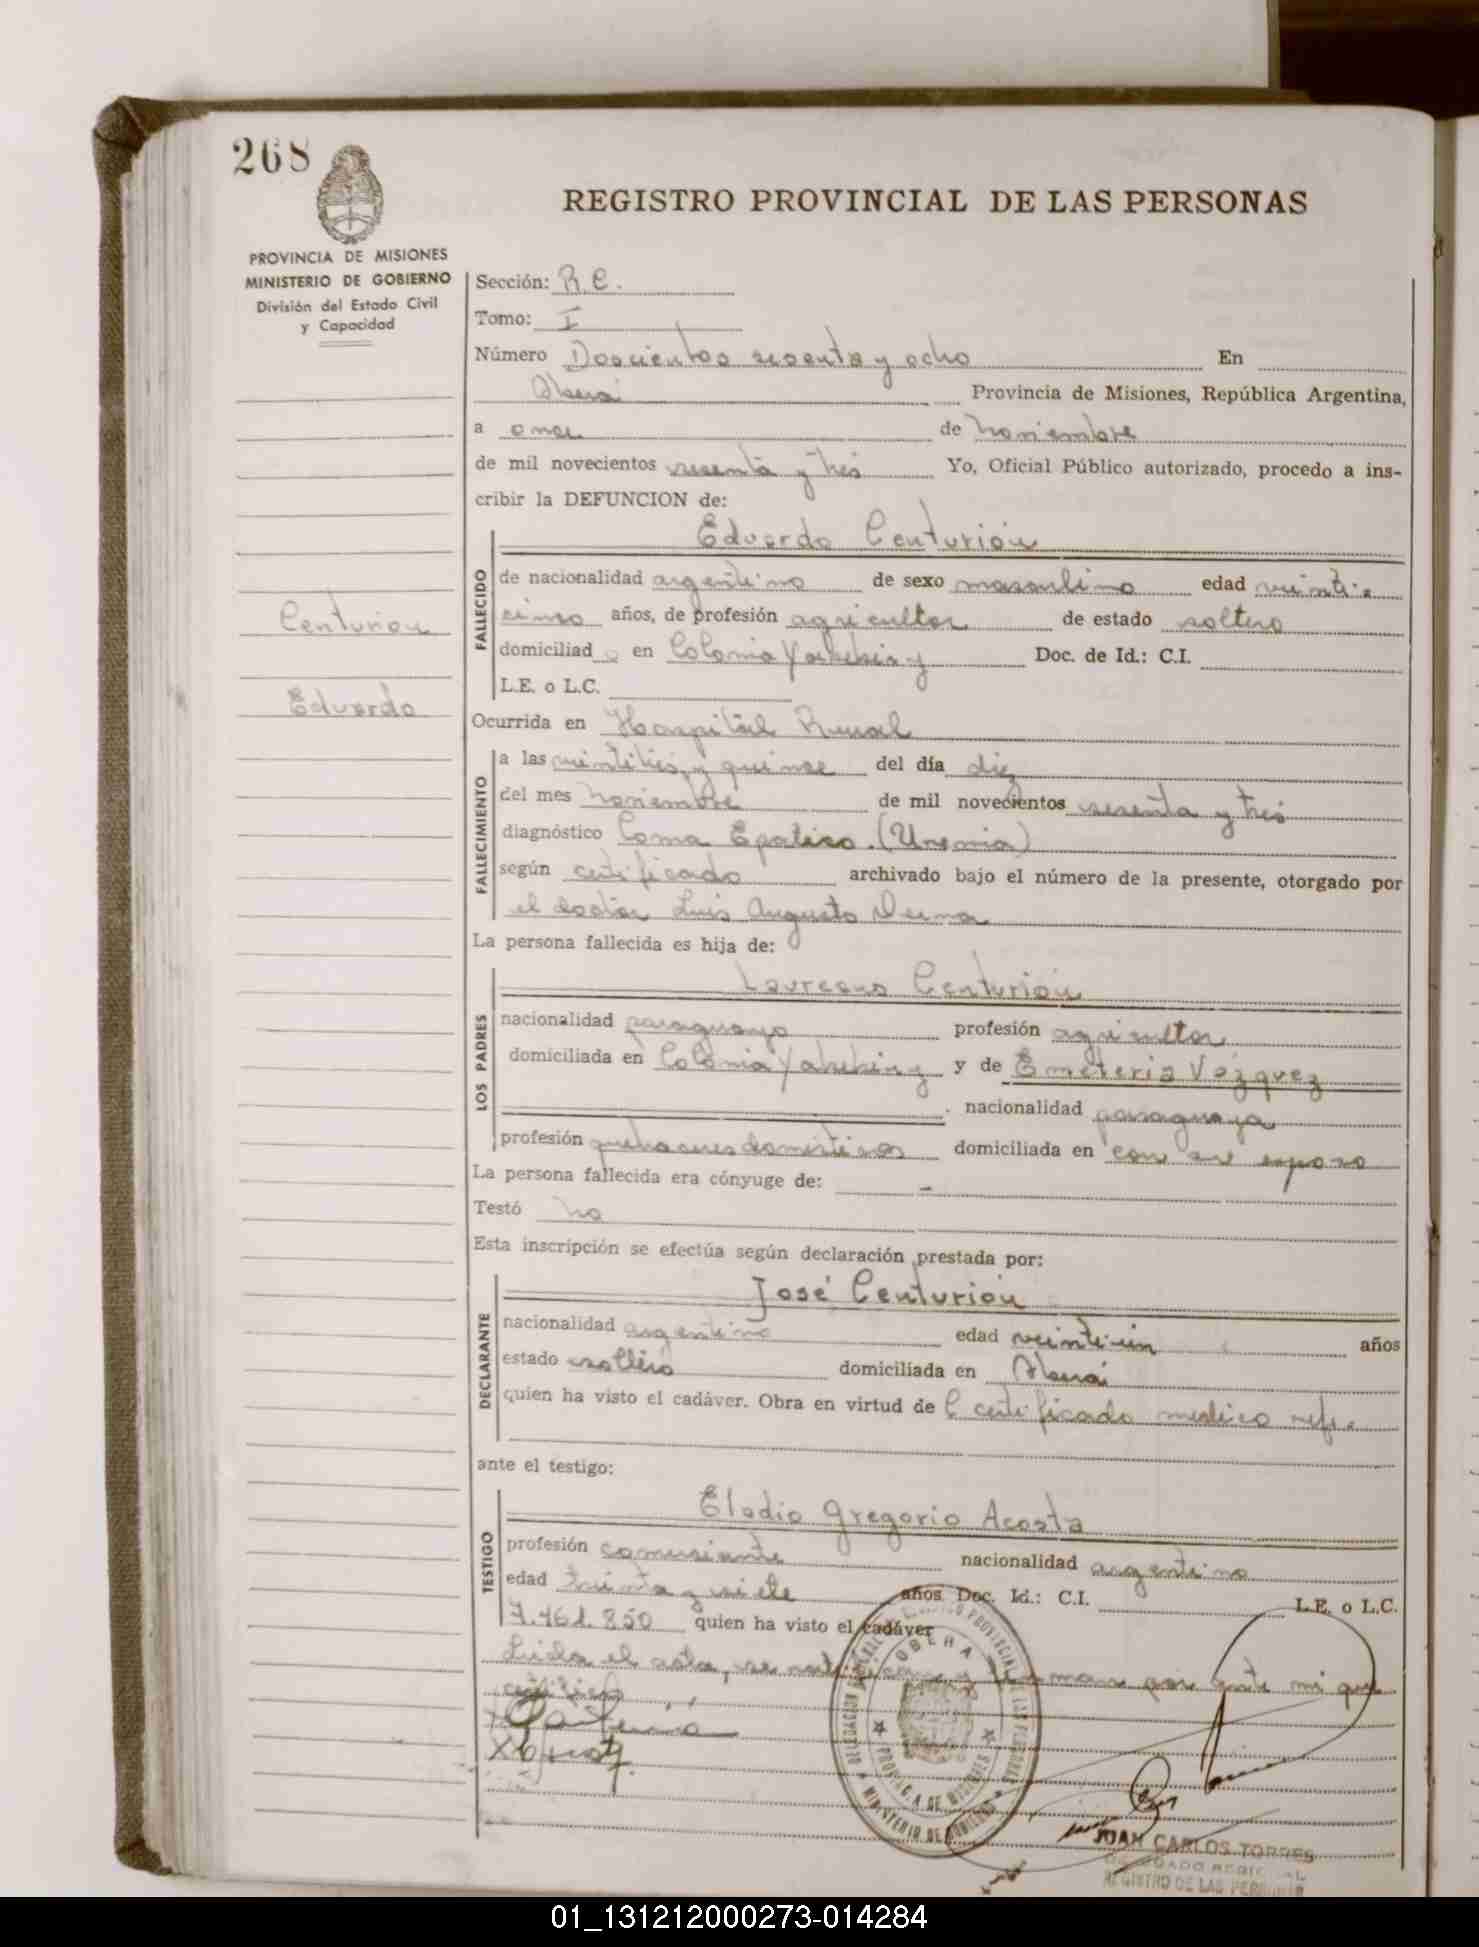 268
REGISTRO PROVINCIAL DE LAS PERSONAS
PROVINCIA DE MISIONES
MINISTERIO DE GOBIERNO
División del Estado Civil
y Capacidad
Sección: R.C.
Tomo: I
Número Doscientos sesenta y ocho En
Oberá Provincia de Misiones, República Argentina,
a once de noviembre
de mil novecientos sesenta y tres Yo, Oficial Público autorizado, procedo a ins-
cribir la DEFUNCION de:
Eduardo Centurión
Centurión
Eduardo
FALLECIDO
de nacionalidad argentino de sexo masculino edad veinti-
cinco años, de profesión agricultor de estado soltero
domiciliado en Colonia Doc. de Id.: C.I.
L.E. o L.C.
Ocurrida en Hospital Rural
FALLECIMIENTO
a las y quince del día diez
del mes noviembre de mil novecientos sesenta y tres
diagnóstico Coma Epatico. (Uremia)
según certificado archivado bajo el número de la presente, otorgado por
el doctor Luis Augusto
La persona fallecida es hija de:
Laureano Centurión
LOS PADRES
nacionalidad paraguayo profesión agricultor
domiciliada en Colonia y de Emeteria Vázquez
nacionalidad paraguaya
profesión quehaceres domésticos domiciliada en con su esposo
La persona fallecida era cónyuge de: -
Testó no
Esta inscripción se efectúa según declaración prestada por:
José Centurión
DECLARANTE
nacionalidad argentino edad veintiún años
estado soltero domiciliada en Oberá
quien ha visto el cadáver. Obra en virtud del certificado médico refe.
ante el testigo:
Eladio Gregorio Acosta
TESTIGO
profesión comerciante nacionalidad argentino
edad treinta y siete años Doc. Id.: C.I. L.E. o L.C.
7.461.850 quien ha visto el cadáver
Leída el acta, se y firman por ante mi que
certifico
PROVINCIA DE MISIONES
MINISTERIO DE GOBIERNO
JUAN CARLOS TORRES
REGISTRO DE LAS
01_131212000273-014284